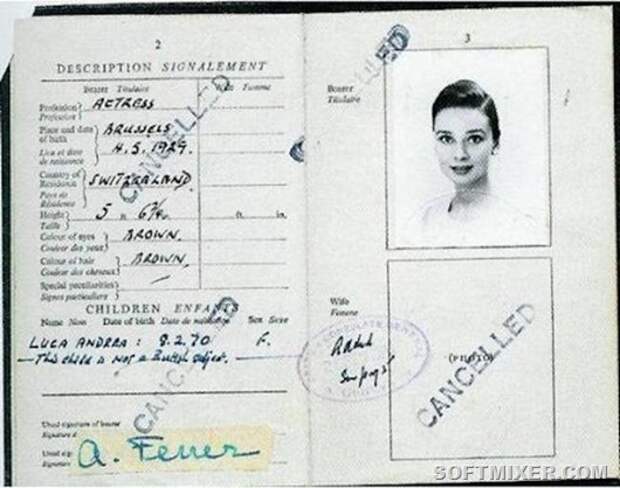 2
DESCRIPTION SIGNALEMENT
Bearer Titulaire
Wife Femme
Profession
Profession
ACTRESS
Place and date
of birth
Lieu et date
de naissance
BRUSSELS
4.5.1929.
Country of
Residence
Pays de
Résidence
SWITZERLAND
Height
Taille
5 ft. in.
Colour of eyes
Couleur des yeux
BROWN.
Colour of hair
Couleur des cheveux
BROWN.
Special peculiarities
Signes particuliers
CHILDREN ENFANTS
Name Nom Date of birth Date de naissance Sex Sexe
LUCA ANDREA: 8.2.70 F.
This child is not a British subject.
Usual signature of bearer
Signature
Usual
Signature
A. Ferrer
CANCELLED
CANCELLED
3
CANCELLED
Bearer
Titulaire
Wife
Femme
(PHOTO)
CANCELLED
SOFTMIXER.COM